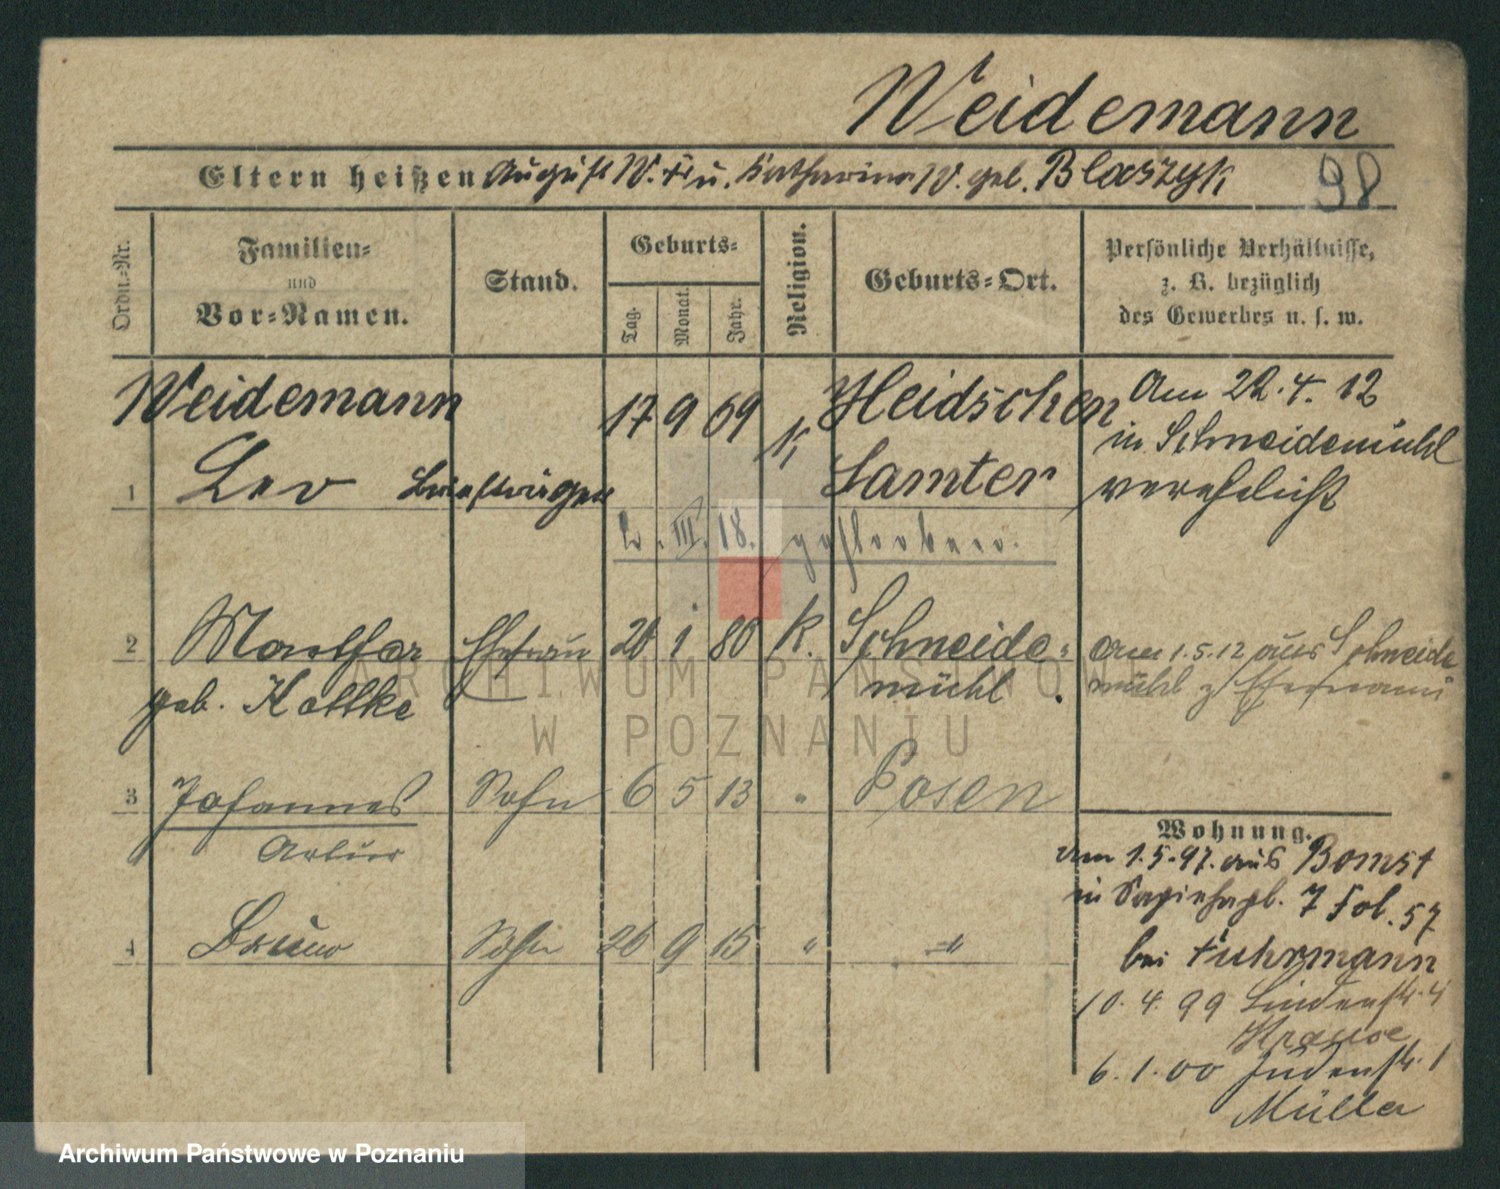 Weidemann
Eltern heißen August W. u. Katharina W. geb. Blaszyk
98
Ordn.-Nr.
Familien-
und
Vor-Namen.
Stand.
Geburts-
Tag.
Monat.
Jahr.
Religion.
Geburts-Ort.
Persönliche Verhältnisse,
z. B. bezüglich
des Gewerbes u. s. w.
Weidemann 17 9 69 K Heidschen Am 22.4.12
in Schneidemühl
1 Leo Briefträger Samter verehelicht
III. 18. gestorben.
2 Martha Ehefrau 20 1 80 K. Schneide- am 1.5.12 aus Schneide
geb. Kottke mühl. mühl z Ehemann
3 Johannes Sohn 6 5 13 " Posen
Artur
Wohnung.
am 1.5.97. aus Bomst
in 7 Fol. 57
4 Bruno Sohn 20 9 15 " "
bei Fuhrmann
10.4.99 Lindenstr. 4
Krause
6.1.00 Judenstr. 1
Müller
ARCHIWUM PAŃSTWOW
W POZNANIU
Archiwum Państwowe w Poznaniu